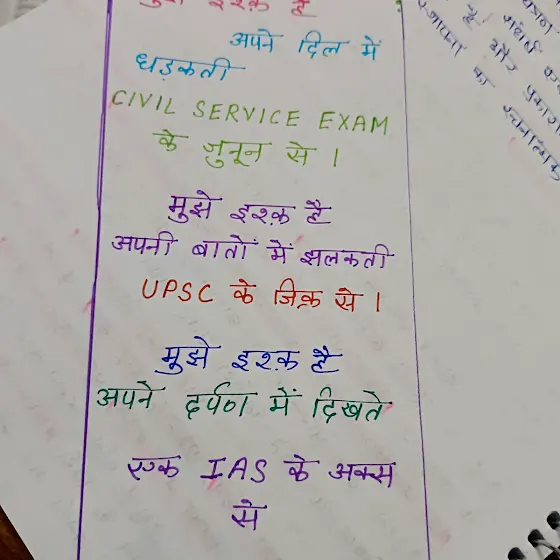 मुझे इश्क़ है
अपने दिल में
धड़कती
CIVIL SERVICE EXAM
के जुनून से ।
मुझे इश्क़ है
अपनी बातों में झलकती
UPSC के जिक्र से ।
मुझे इश्क़ है
अपने दर्पण में दिखते
एक IAS के अक्स
से